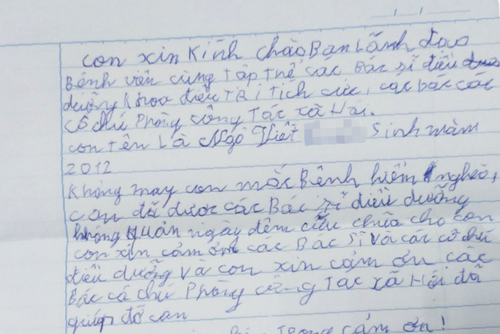 con xin kính chào Ban Lãnh đạo
Bệnh viên cùng tập thể các Bác sĩ điều
dưỡng khoa điều TRị Tích cực, các bác các
cô chú Phòng công Tác xã Hội.
con tên là Ngô Việt Sinh năm
2012
Không may con mắc Bệnh hiểm nghèo,
con đã được các Bác sĩ điều dưỡng
không quản ngày đêm cứu chữa cho con
con xin cảm ơn các Bác Sĩ và các cô chú
điều dưỡng và con xin cảm ơn các
Bác cô chú Phòng công Tác xã Hội đã
giúp đỡ con
Trọng cảm ơn!